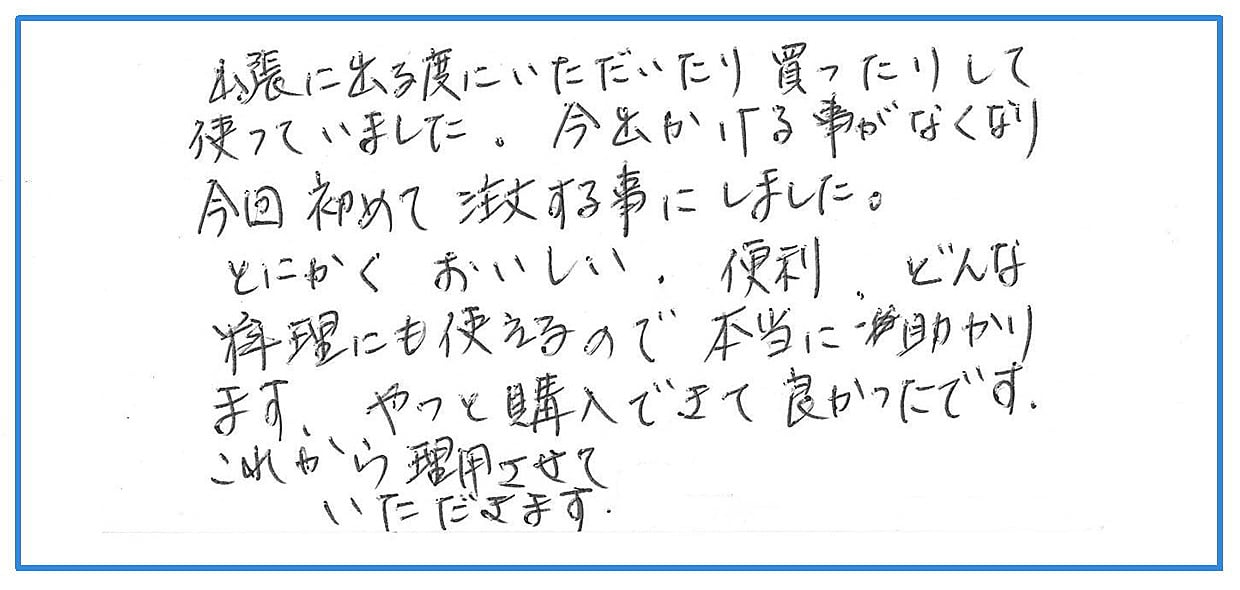 出張に出る度にいただいたり買ったりして
使っていました。今出かける事がなくなり
今回初めて注文する事にしました。
とにかくおいしい.便利、どんな
料理にも使えるので本当に助かり
ます、やっと購入できて良かったです.
これから理用させて
いただきます.